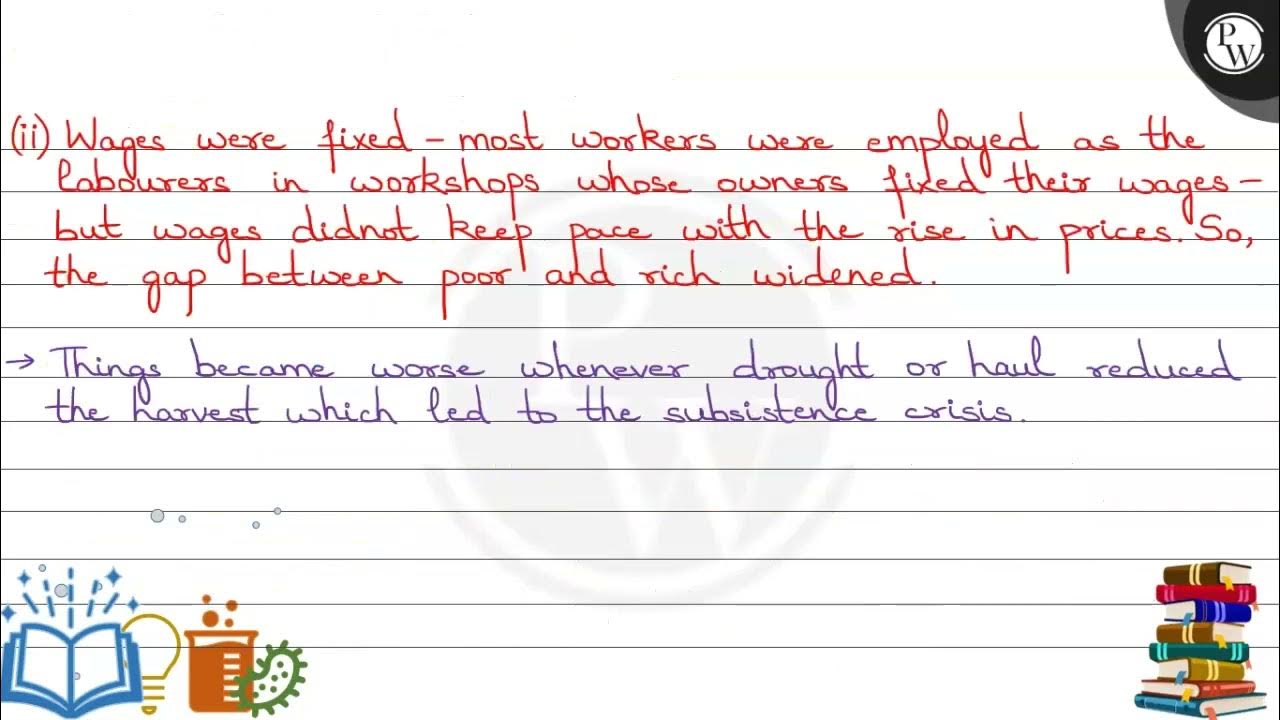 PW
(ii) Wages were fixed – most workers were employed as the
labourers in workshops whose owners fixed their wages –
but wages didnot keep pace with the rise in prices. So,
the gap between poor and rich widened.
→ Things became worse whenever drought or haul reduced
the harvest which led to the subsistence crisis.
PW